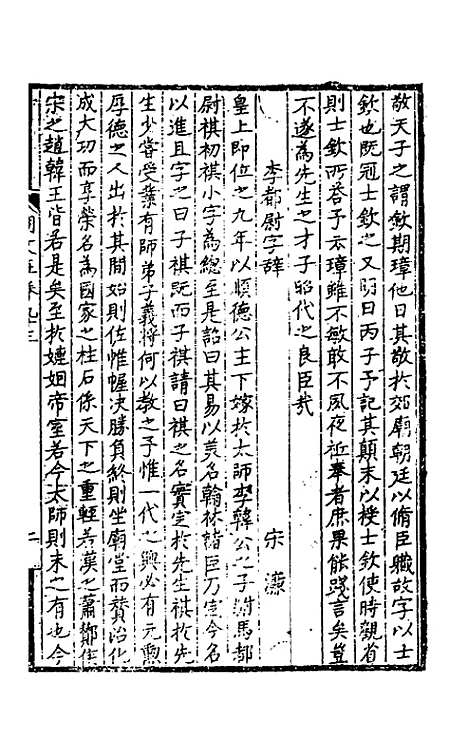 敬天子之謂歟期璋他日其敬於郊廟朝廷以脩臣職故字以士
欽也既冠士欽之又明日丙子予記其顛末以授士欽使時觀省
則士欽所答予亦璋雖不敏敢不夙夜祗奉者庶果能踐言矣豈
不遂為先生之才子昭代之良臣哉
李都尉字辭
宋濂
皇上即位之九年以順德公主下嫁於太師李韓公之子駙馬都
尉祺初祺小字為總至是詔曰其易以美名翰林諸臣乃定今名
以進且字之曰子祺既而子祺請曰祺之名實定於先生祺於先
生少嘗受業有師弟子義將何以教之予惟一代之興必有元勳
厚德之人出於其間始則佐惟幄決勝負終則坐廟堂而贊治化
成大功而享榮名為國家之柱石係天下之重輕若漢之蕭酇侯
宋之趙韓王皆若是矣至於婕姻帝室若今太師則未之有也今
明文在卷九十三
二